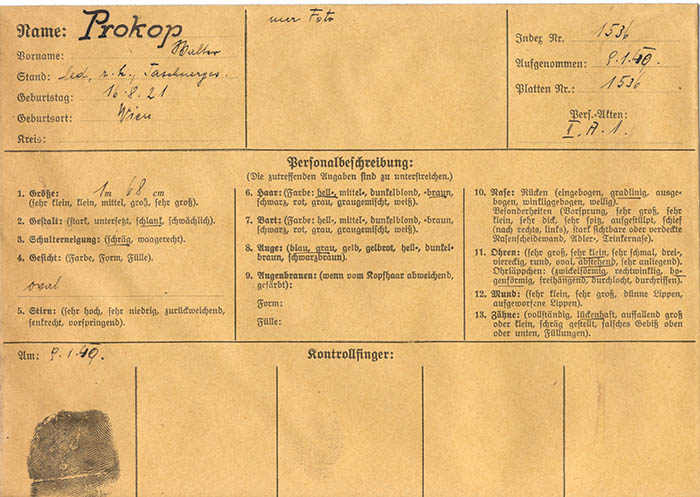 Name: Prokop
nur Foto
Vorname: Walter
Stand: led., r.k., Taschnerges.
Geburtstag: 16.8.21
Geburtsort: Wien
Kreis:
Index Nr. 1536
Aufgenommen: 9.1.40.
Platten Nr.: 1536
Pers.-Akten:
I. A. 1.
Personalbeschreibung:
(Die zutreffenden Angaben sind zu unterstreichen.)
1. Größe: 1 m 68 cm
(sehr klein, klein, mittel, groß, sehr groß).
2. Gestalt: (stark, untersetzt, schlank, schwächlich).
3. Schulterneigung: (schräg, waagerecht).
4. Gesicht: (Farbe, Form, Fülle).
oval
5. Stirn: (sehr hoch, sehr niedrig, zurückweichend,
senkrecht, vorspringend).
6. Haar: (Farbe: hell-, mittel-, dunkelblond, -braun,
schwarz, rot, grau, graugemischt, weiß).
7. Bart: (Farbe: hell-, mittel-, dunkelblond, -braun,
schwarz, rot, grau, graugemischt, weiß).
8. Auge: (blau, grau, gelb, gelbrot, hell-, dunkel-
braun, schwarzbraun).
9. Augenbrauen: (wenn vom Kopfhaar abweichend,
gefärbt):
Form:
Fülle:
10. Nase: Rücken (eingebogen, gradlinig, ausge-
bogen, winkliggebogen, wellig).
Besonderheiten (Vorsprung, sehr groß, sehr
klein, sehr dick, sehr spitz, aufgestülpt, schief
(nach rechts, links), stark sichtbare oder verdeckte
Nasenscheidewand, Adler-, Trinkernase).
11. Ohren: (sehr groß, sehr klein, sehr schmal, drei-,
viereckig, rund, oval, abstehend, sehr anliegend).
Ohrläppchen: (zwickelförmig, rechtwinklig, bo-
genförmig, freihängend, durchlocht, durchrissen).
12. Mund: (sehr klein, sehr groß, dünne Lippen,
aufgeworfene Lippen).
13. Zähne: (vollständig, lückenhaft, auffallend groß
oder klein, schräg gestellt, falsches Gebiß oben
oder unten, Füllungen).
Am: 9.1.40.
Kontrollfinger: